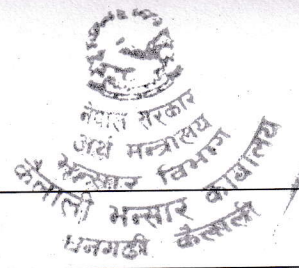 नेपाल सरकार
अर्थ मन्त्रालय
भन्सार विभाग
कैलाली भन्सार कार्यालय
धनगढी कैलाली